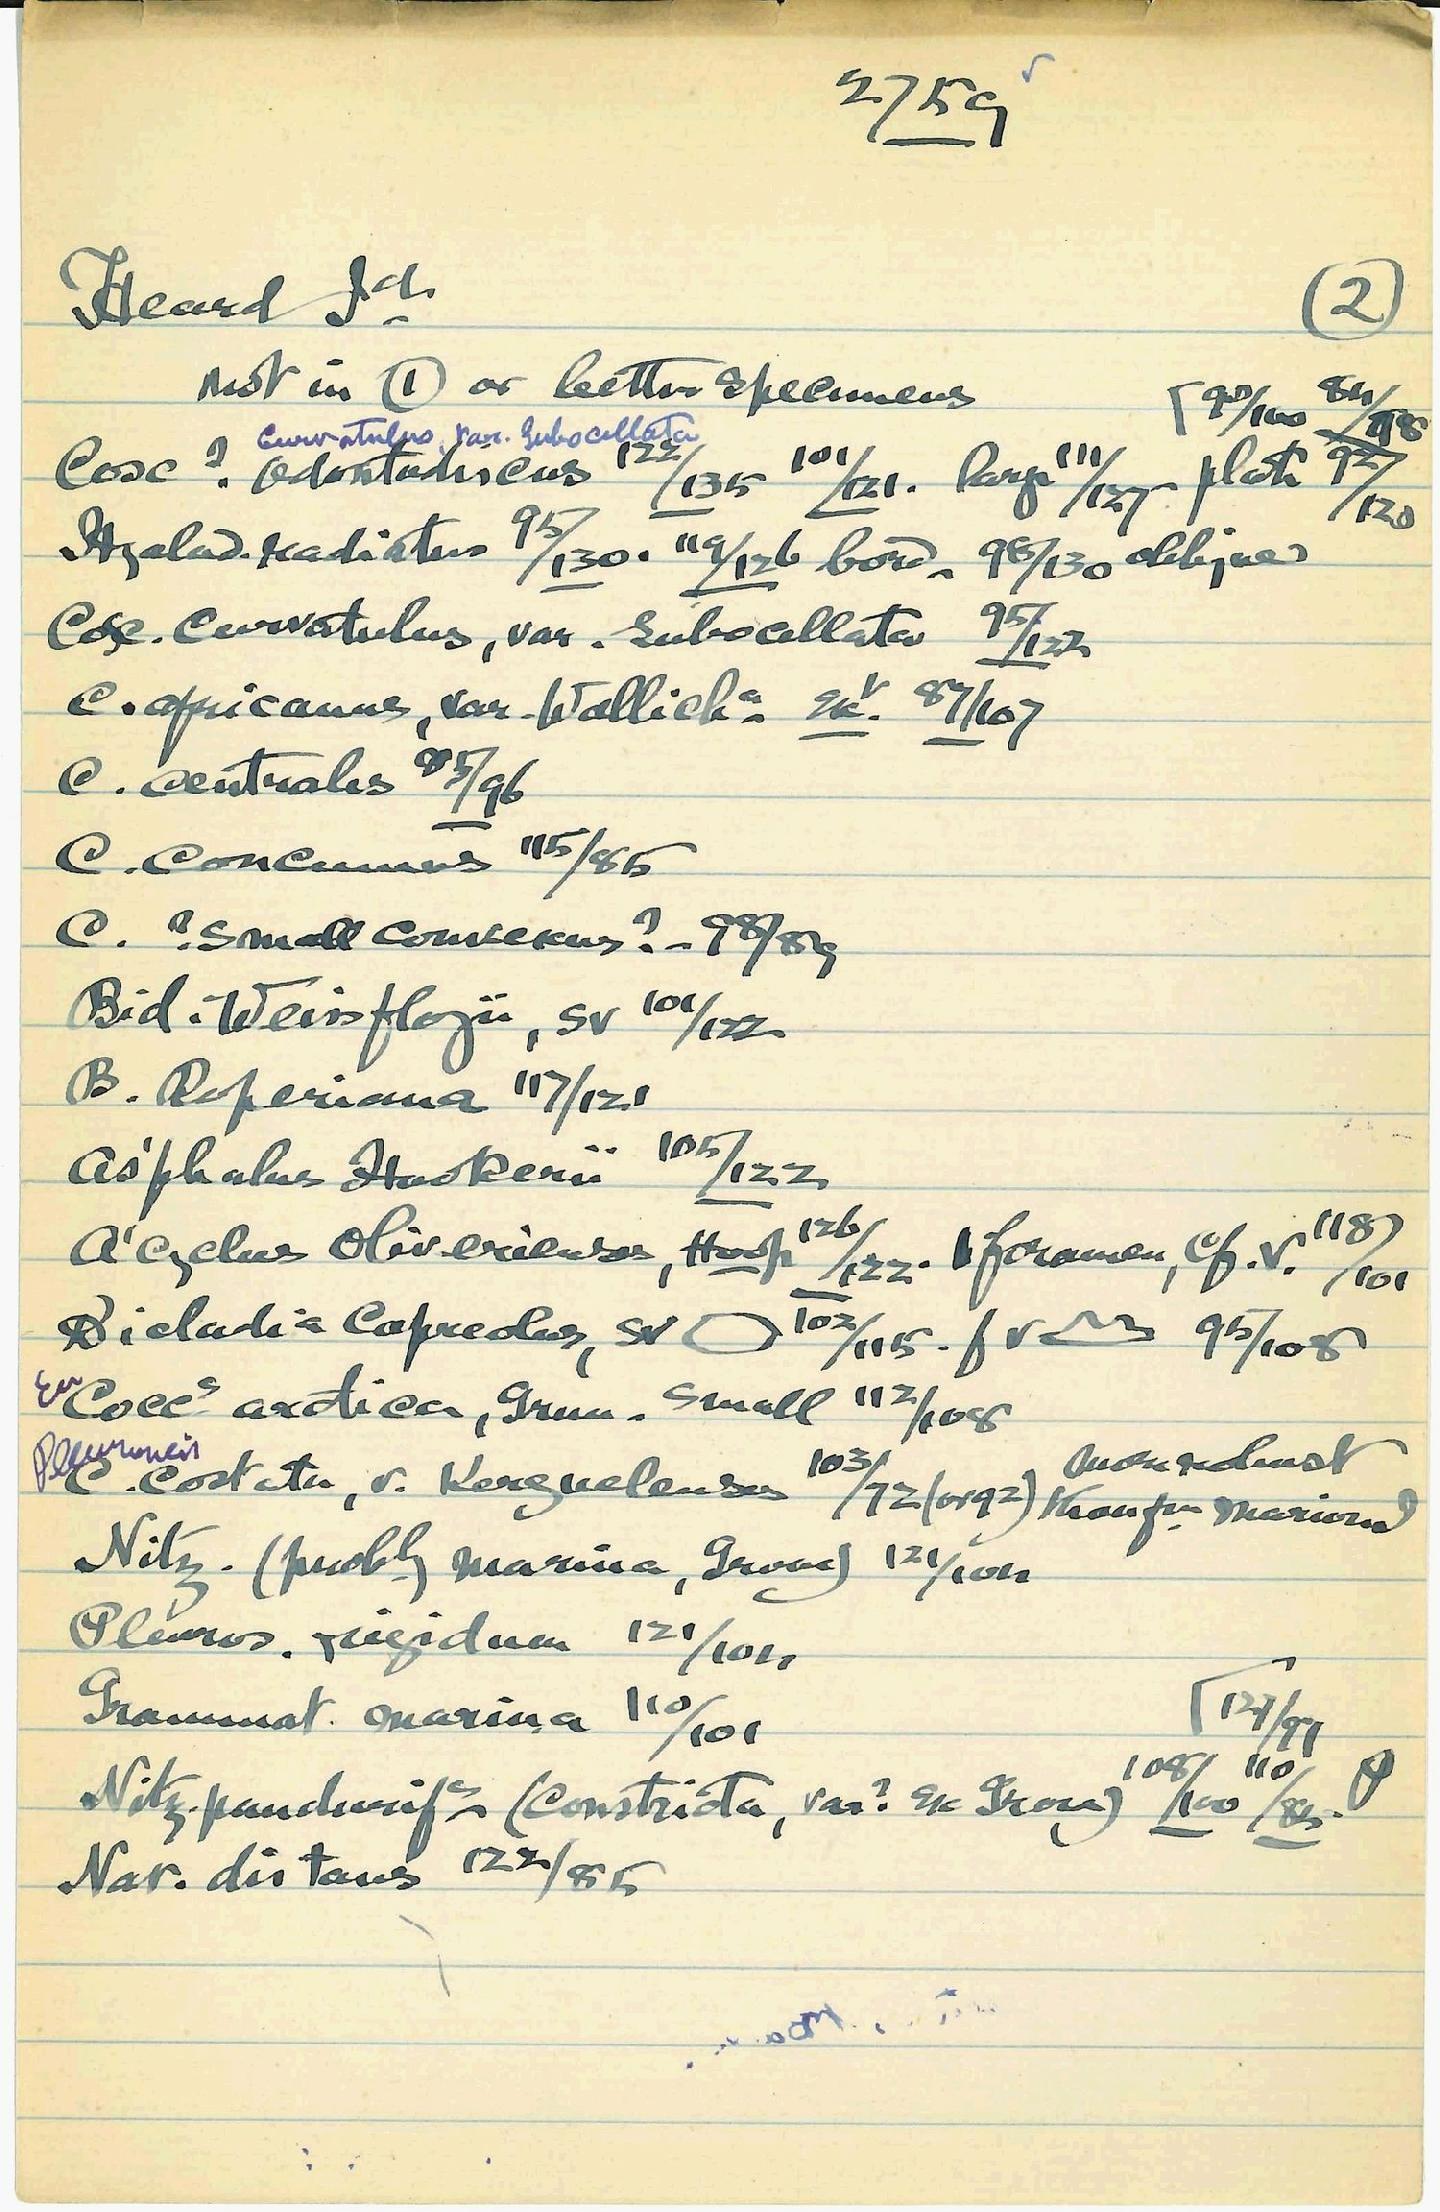 2759
Heard Id. (2)
Not in (1) or better specimens
[90/100
Curvatulus, var. Subocellata
Cosc ? Odontodiscus 122/135 101/121. large 111/127. plate 92/120
Hyalod. radiatus 95/130. 119/126 bord. 98/130 oblique
Cosc. Curvatulus, var. Subocellata 95/122
C. africanus, var. Wallich.ª 87/107
C. centralis 85/96
C. concinnus 115/85
C. ? Small convexus? - 98/89
Bid. Weissflogii, sv 101/122
B. Roperiana 117/121
As'phalus Hookerii 105/122
A'cyclus Oliverienses, 126/122. foramen, cf. V. 118/101
Dicladia Capreolus, sv 102/115. fv 95/108
Cocc.s arctica, Grun. Small 112/108
Pleuroneis
C. Costata, v. Kerguelenses 103/72 (or 92) more robust
than fm Marion Id
Nitz. (probly marina, Grove) 121/104
Pleuros. rigidum 121/104
Grammat. marina 110/101
[127/91
Nitz. pandurif.s (Constricta, var? ex Grove) 108/100 110/85.
Nav. distans 122/85